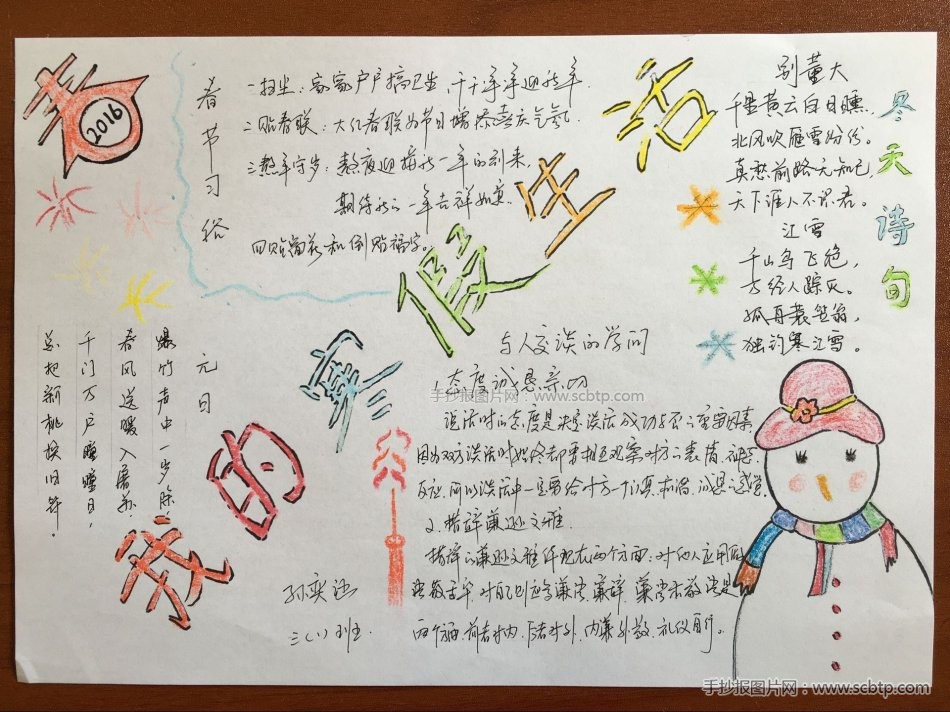 春
2016
春节习俗
一扫尘：家家户户搞卫生，干干净净迎新年.
二贴春联：大红春联为节日增添喜庆气氛.
三熬年守岁：熬夜迎接新一年的到来，
期待新的一年吉祥如意.
四贴窗花和倒贴福字。
我的寒假生活
冬天诗句
别董大
千里黄云白日曛，
北风吹雁雪纷纷。
莫愁前路无知己，
天下谁人不识君。
江雪
千山鸟飞绝，
万径人踪灭。
孤舟蓑笠翁，
独钓寒江雪。
元日
爆竹声中一岁除，
春风送暖入屠苏.
千门万户曈曈日，
总把新桃换旧符.
与人交谈的学问
1.态度诚恳亲切
说话时的态度是决定谈话成功与否的重要因素，
因为双方谈话时始终都要相互观察对方的表情、神态、
反应，所以谈话中一定要给对方一个认真、和谐、诚恳的感觉.
2、措辞谦逊文雅.
措辞的谦逊文雅体现在两个方面：对他人应用
敬语，对自己则应
前者对内，后者对外，内谦外敬，礼仪自行。
三(1)班.
手抄报图片网：www.scbtp.com
手抄报图片网：www.scbtp.com